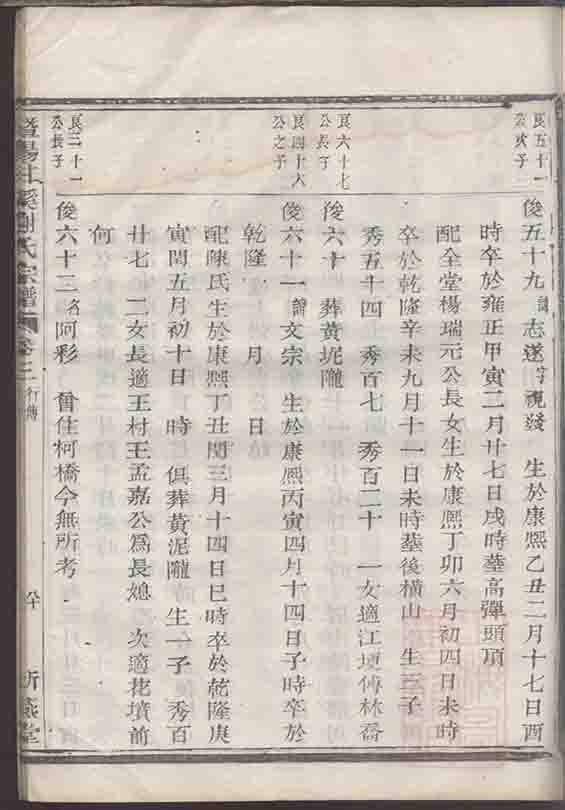 艮五十一
公次子
俊五十九 諱志遂字視淺 生於康熙乙丑二月十七日酉
時卒於雍正甲寅二月廿七日戌時塟高彈頭頂
配全堂楊瑞元公長女生於康熙丁卯六月初四日未時
卒於乾隆辛未九月十一日未時塟後橫山 生三子
秀五十四 秀百七 秀百二十 一女適江埂傅林喬
艮六十七
公長子
俊六十 葬黃坭隴
艮四十六
公之子
俊六十一 諱文宗 生於康熙丙寅四月十四日子時卒於
乾隆 月 日
配陳氏生於康熙丁丑閏三月十四日巳時卒於乾隆庚
寅閏五月初十日 時 俱葬黃泥隴 生一子 秀百
廿七 二女長適王村王孟嘉公為長媳 次適花墳前
何
艮三十一
公長子
俊六十三 名阿彩 曾住柯橋今無所考
暨陽 溪 氏宗譜 卷三 行傳